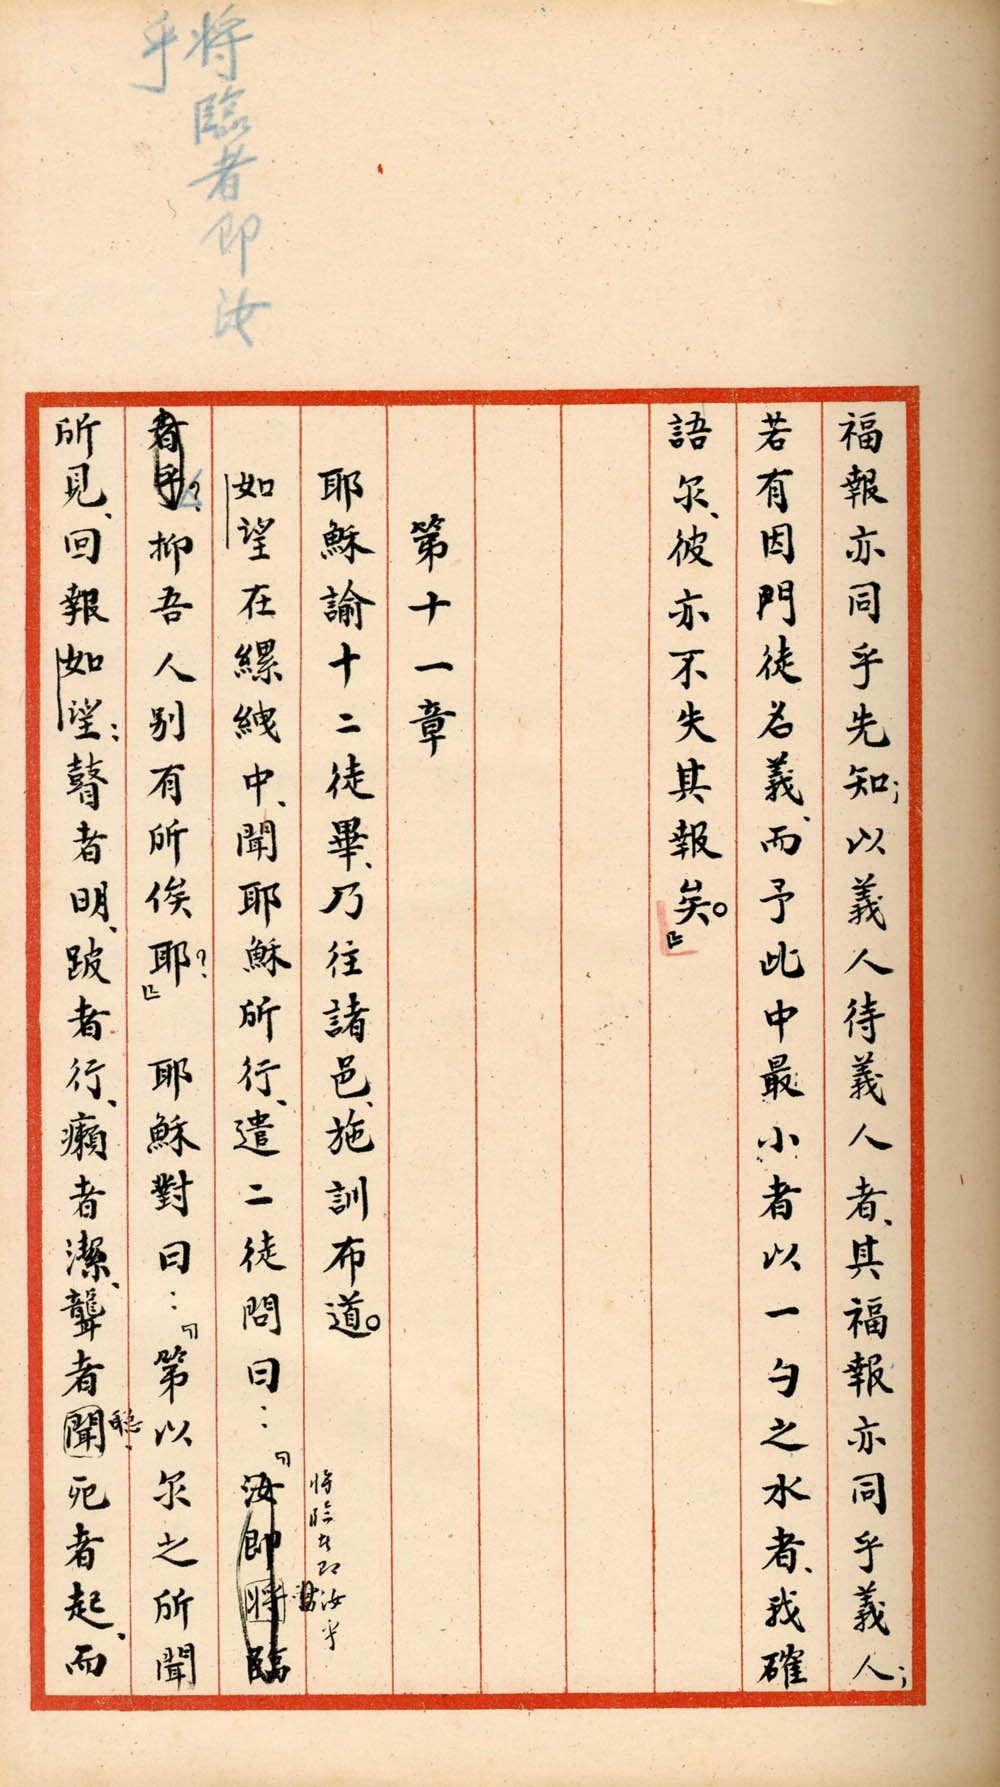 將臨者即汝
乎
福報亦同乎先知;以義人待義人者、其福報亦同乎義人;
若有因門徒名義、而予此中最小者以一勺之水者、我確
語尔、彼亦不失其報矣。』
第十一章
耶穌諭十二徒畢、乃往諸邑、施訓布道。
將臨者即汝乎
如望在縲絏中、聞耶穌所行、遣二徒問曰:『汝即將臨
者乎?抑吾人別有所俟耶?』耶穌對曰:『第以尔之所聞
所見、回報如望;瞽者明、跛者行、癩者潔、聾者聞死者起、而
聰、